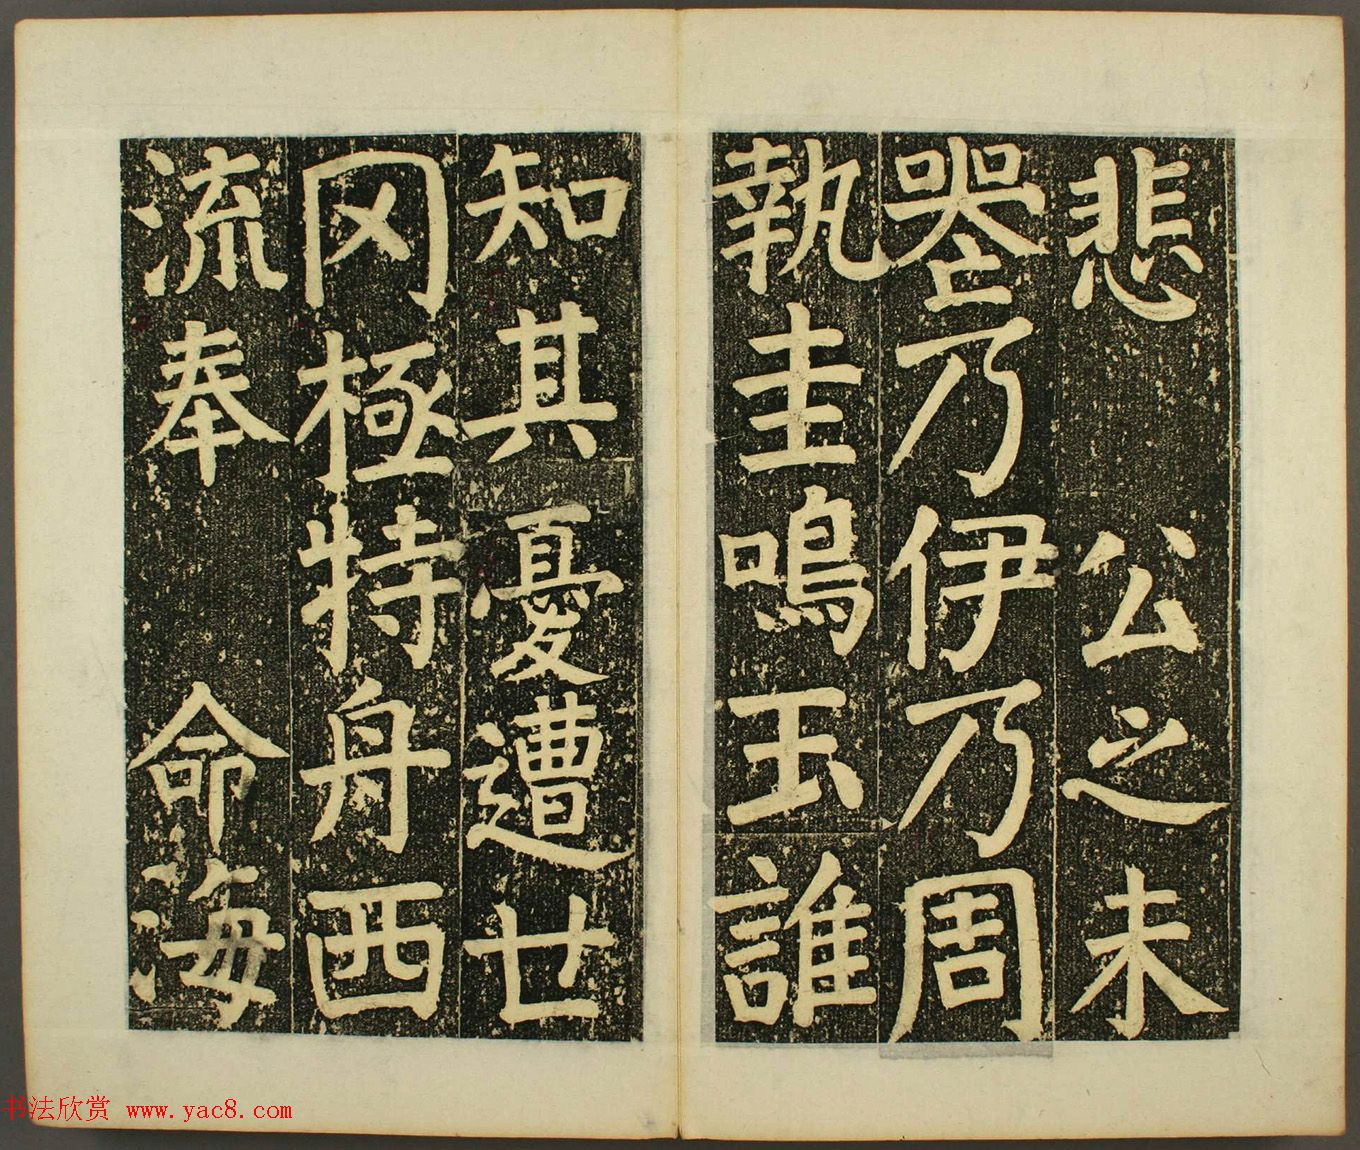 悲 公之未
喪乃伊乃周
執圭鳴玉誰
知其憂遭廿
冈極特舟西
流奉 命海
书法欣赏 www.yac8.com